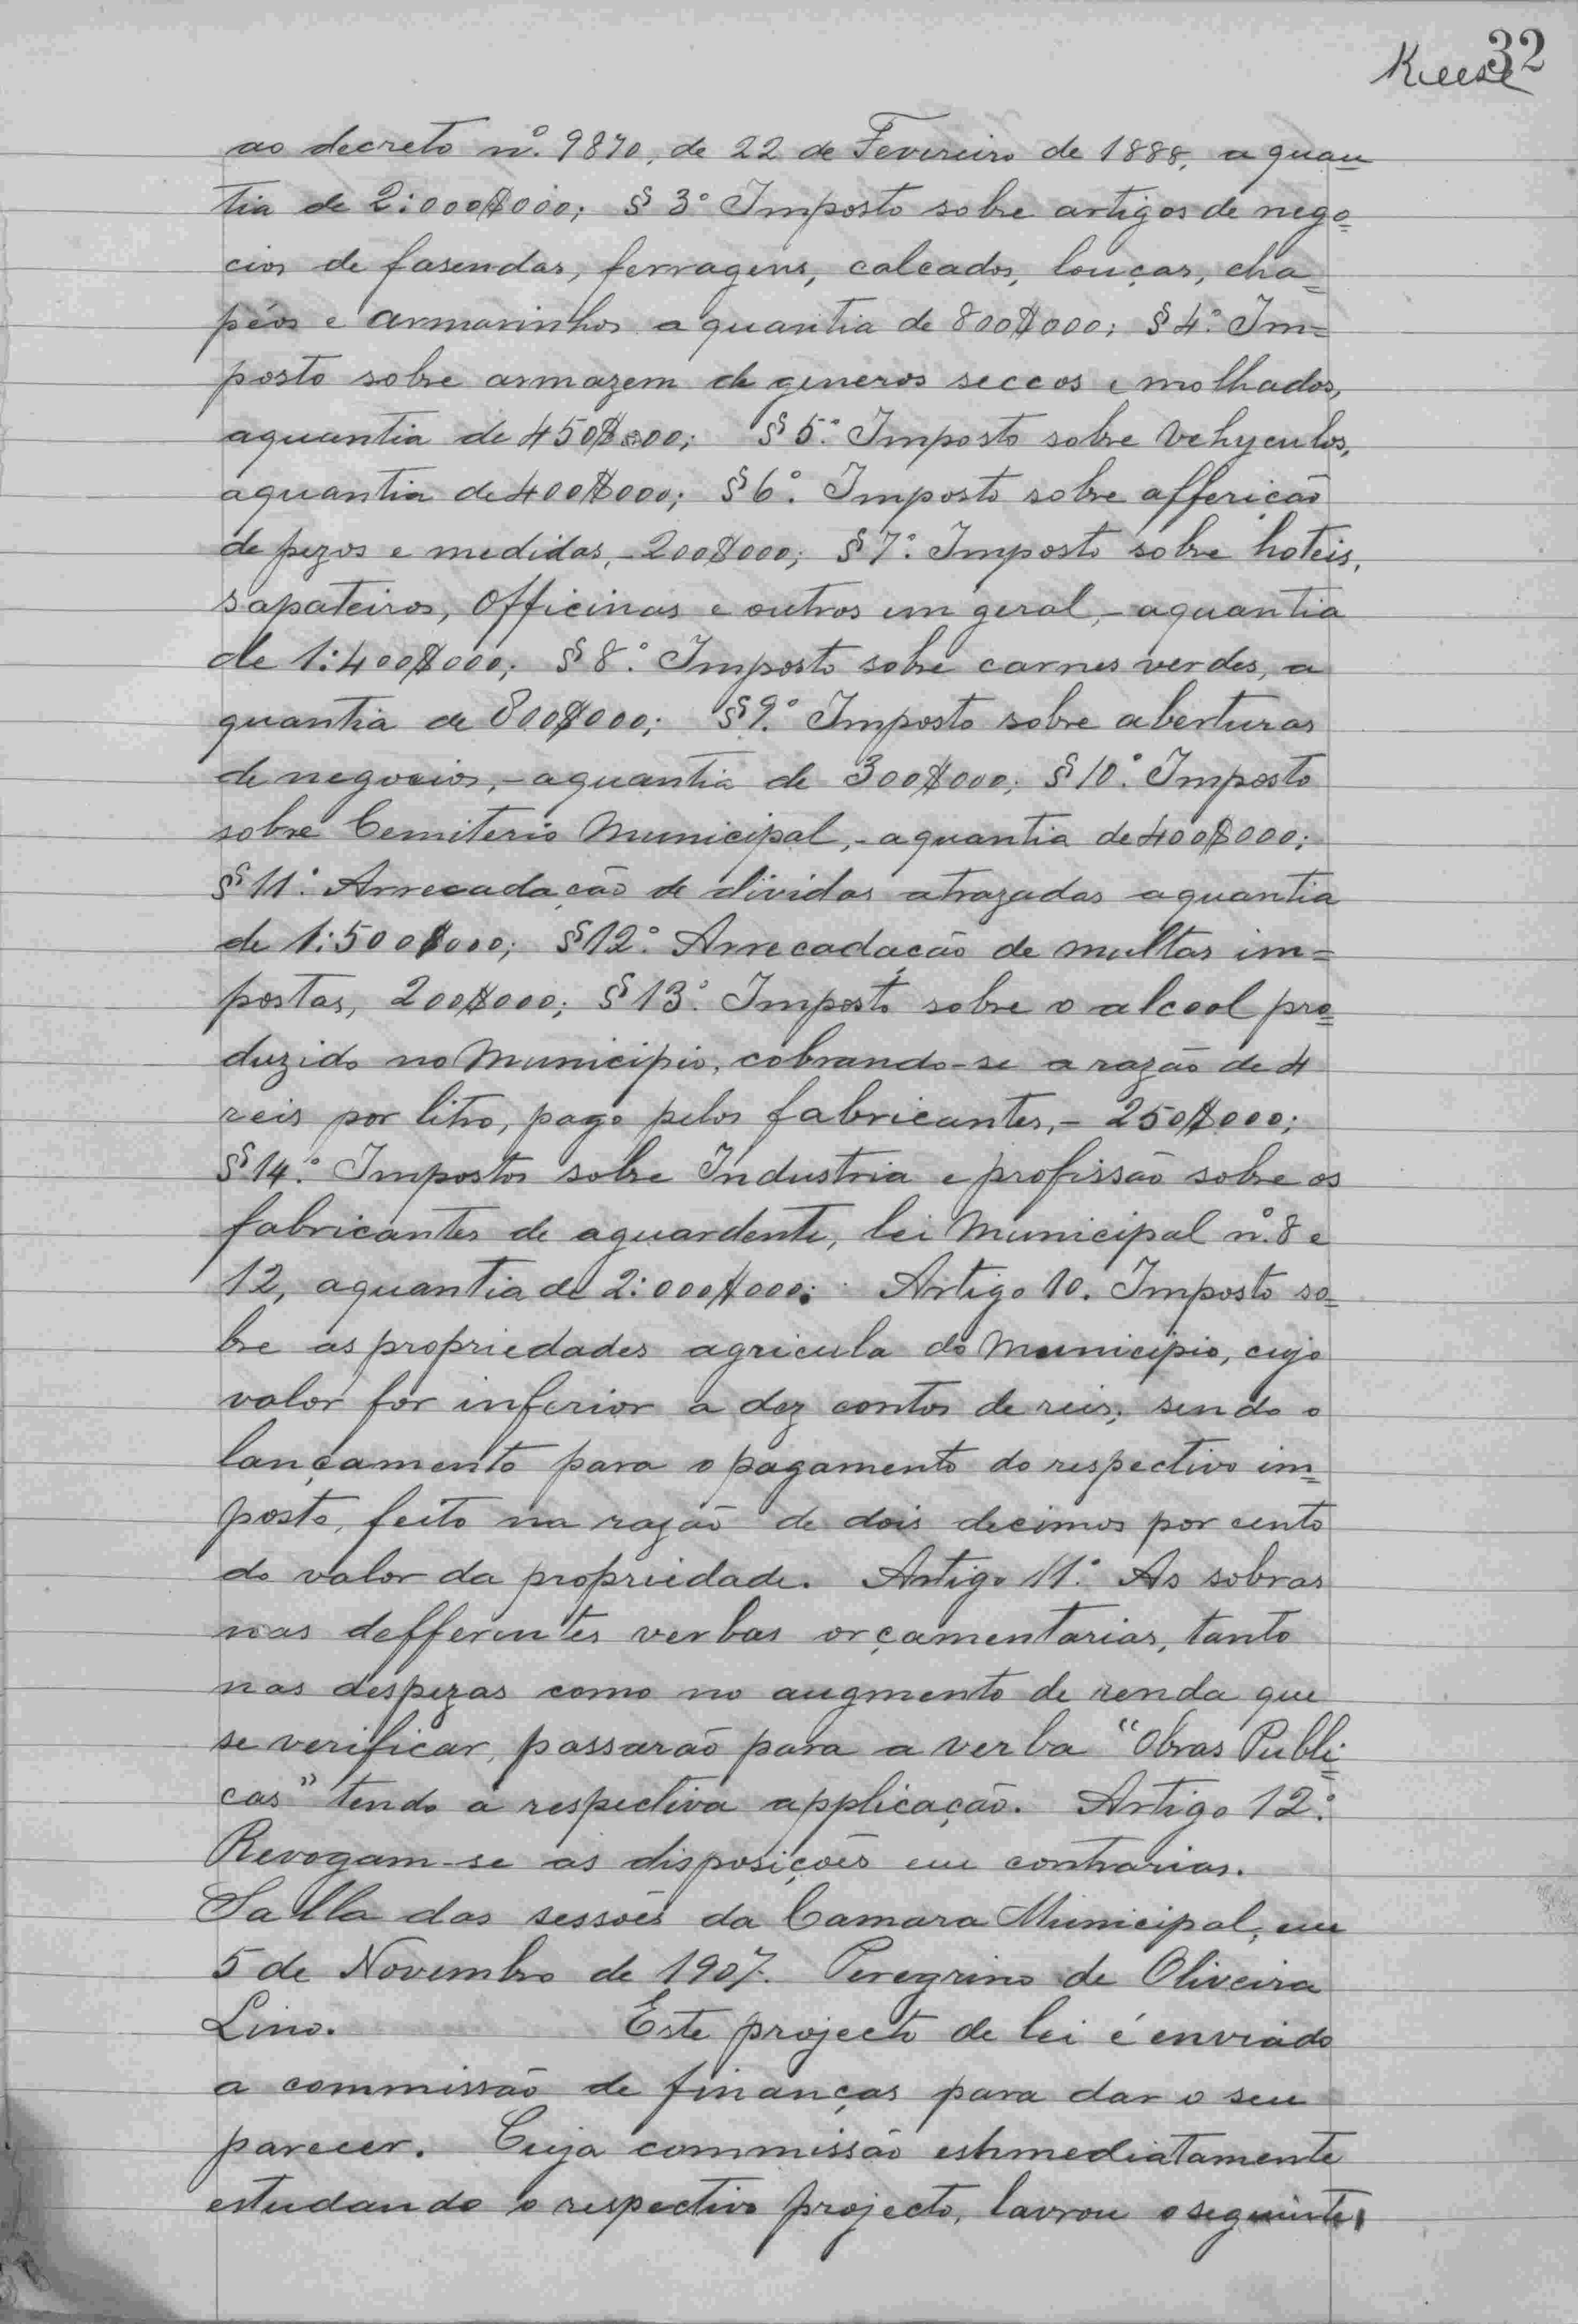 32
ao decreto nº. 9870, de 22 de Fevereiro de 1888, a quan
tia de 2:000$000; § 3º Imposto sobre artigos de nego=
cios de fasendas, ferragens, calcados, louças, cha=
péos e armarinhos a quantia de 800$000; § 4º. Im=
posto sobre armazem de generos seccos e molhados,
aquantia de 450$000; § 5º. Imposto sobre vehyculos,
aquantia de 400$000; § 6º. Imposto sobre affericão
de pezos e medidas, - 200$000; § 7º. Imposto sobre hoteis,
sapateiros, officinas e outros em geral, - aquantia
de 1:400$000; § 8º. Imposto sobre carnes verdes, a
quantia de 800$000; § 9º. Imposto sobre aberturas
de negocios, - aquantia de 300$000; § 10º. Imposto
sobre Cemiterio Municipal, - aquantia de 400$000;
§ 11º. Arrecadação de dividas atrazadas aquantia
de 1:500$000; § 12º. Arrecadação de multas im=
postas, 200$000; § 13º. Imposto sobre o alcool pro=
duzido no Municipio, cobrando-se a razão de 4
reis por litro, pago pelos fabricantes, - 250$000;
§ 14º. Impostos sobre Industria e profissão sobre os
fabricantes de aguardente, lei Municipal nº. 8 e
12, aquantia de 2:000$000; Artigo 10. Imposto so=
bre as propriedades agricula do Municipio, cujo
valor for inferior a dez contos de reis; sendo o
lançamento para o pagamento do respectivo im=
posto, feito na razão de dois decimos por cento
do valor da propriedade. Artigo 11º. As sobras
nas defferentes verbas orçamentarias, tanto
nas despezas como no augmento de renda que
se verificar, passarão para a verba "Obras Publi=
cas" tendo a respectiva applicação. Artigo 12º.
Revogam-se as disposições em contrarias.
Salla das sessões da Camara Municipal, em
5 de Novembro de 1907. Peregrino de Oliveira
Lino. Este projecto de lei é enviado
a commissão de finanças para dar o seu
parecer. Cuja commissão
estudando o respectivo projecto, lavrou o seguinte